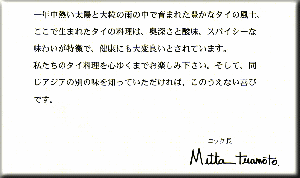 一年中熱い太陽と大粒の雨の中で育まれた豊かなタイの風土、
ここで生まれたタイの料理は、奥深さと酸味、スパイシーな
味わいが特徴で、健康にも大変良いとされています。
私たちのタイ料理を心ゆくまでお楽しみ下さい。そして、同
じアジアの別の味を知っていただければ、このうえない喜び
です。
コック長